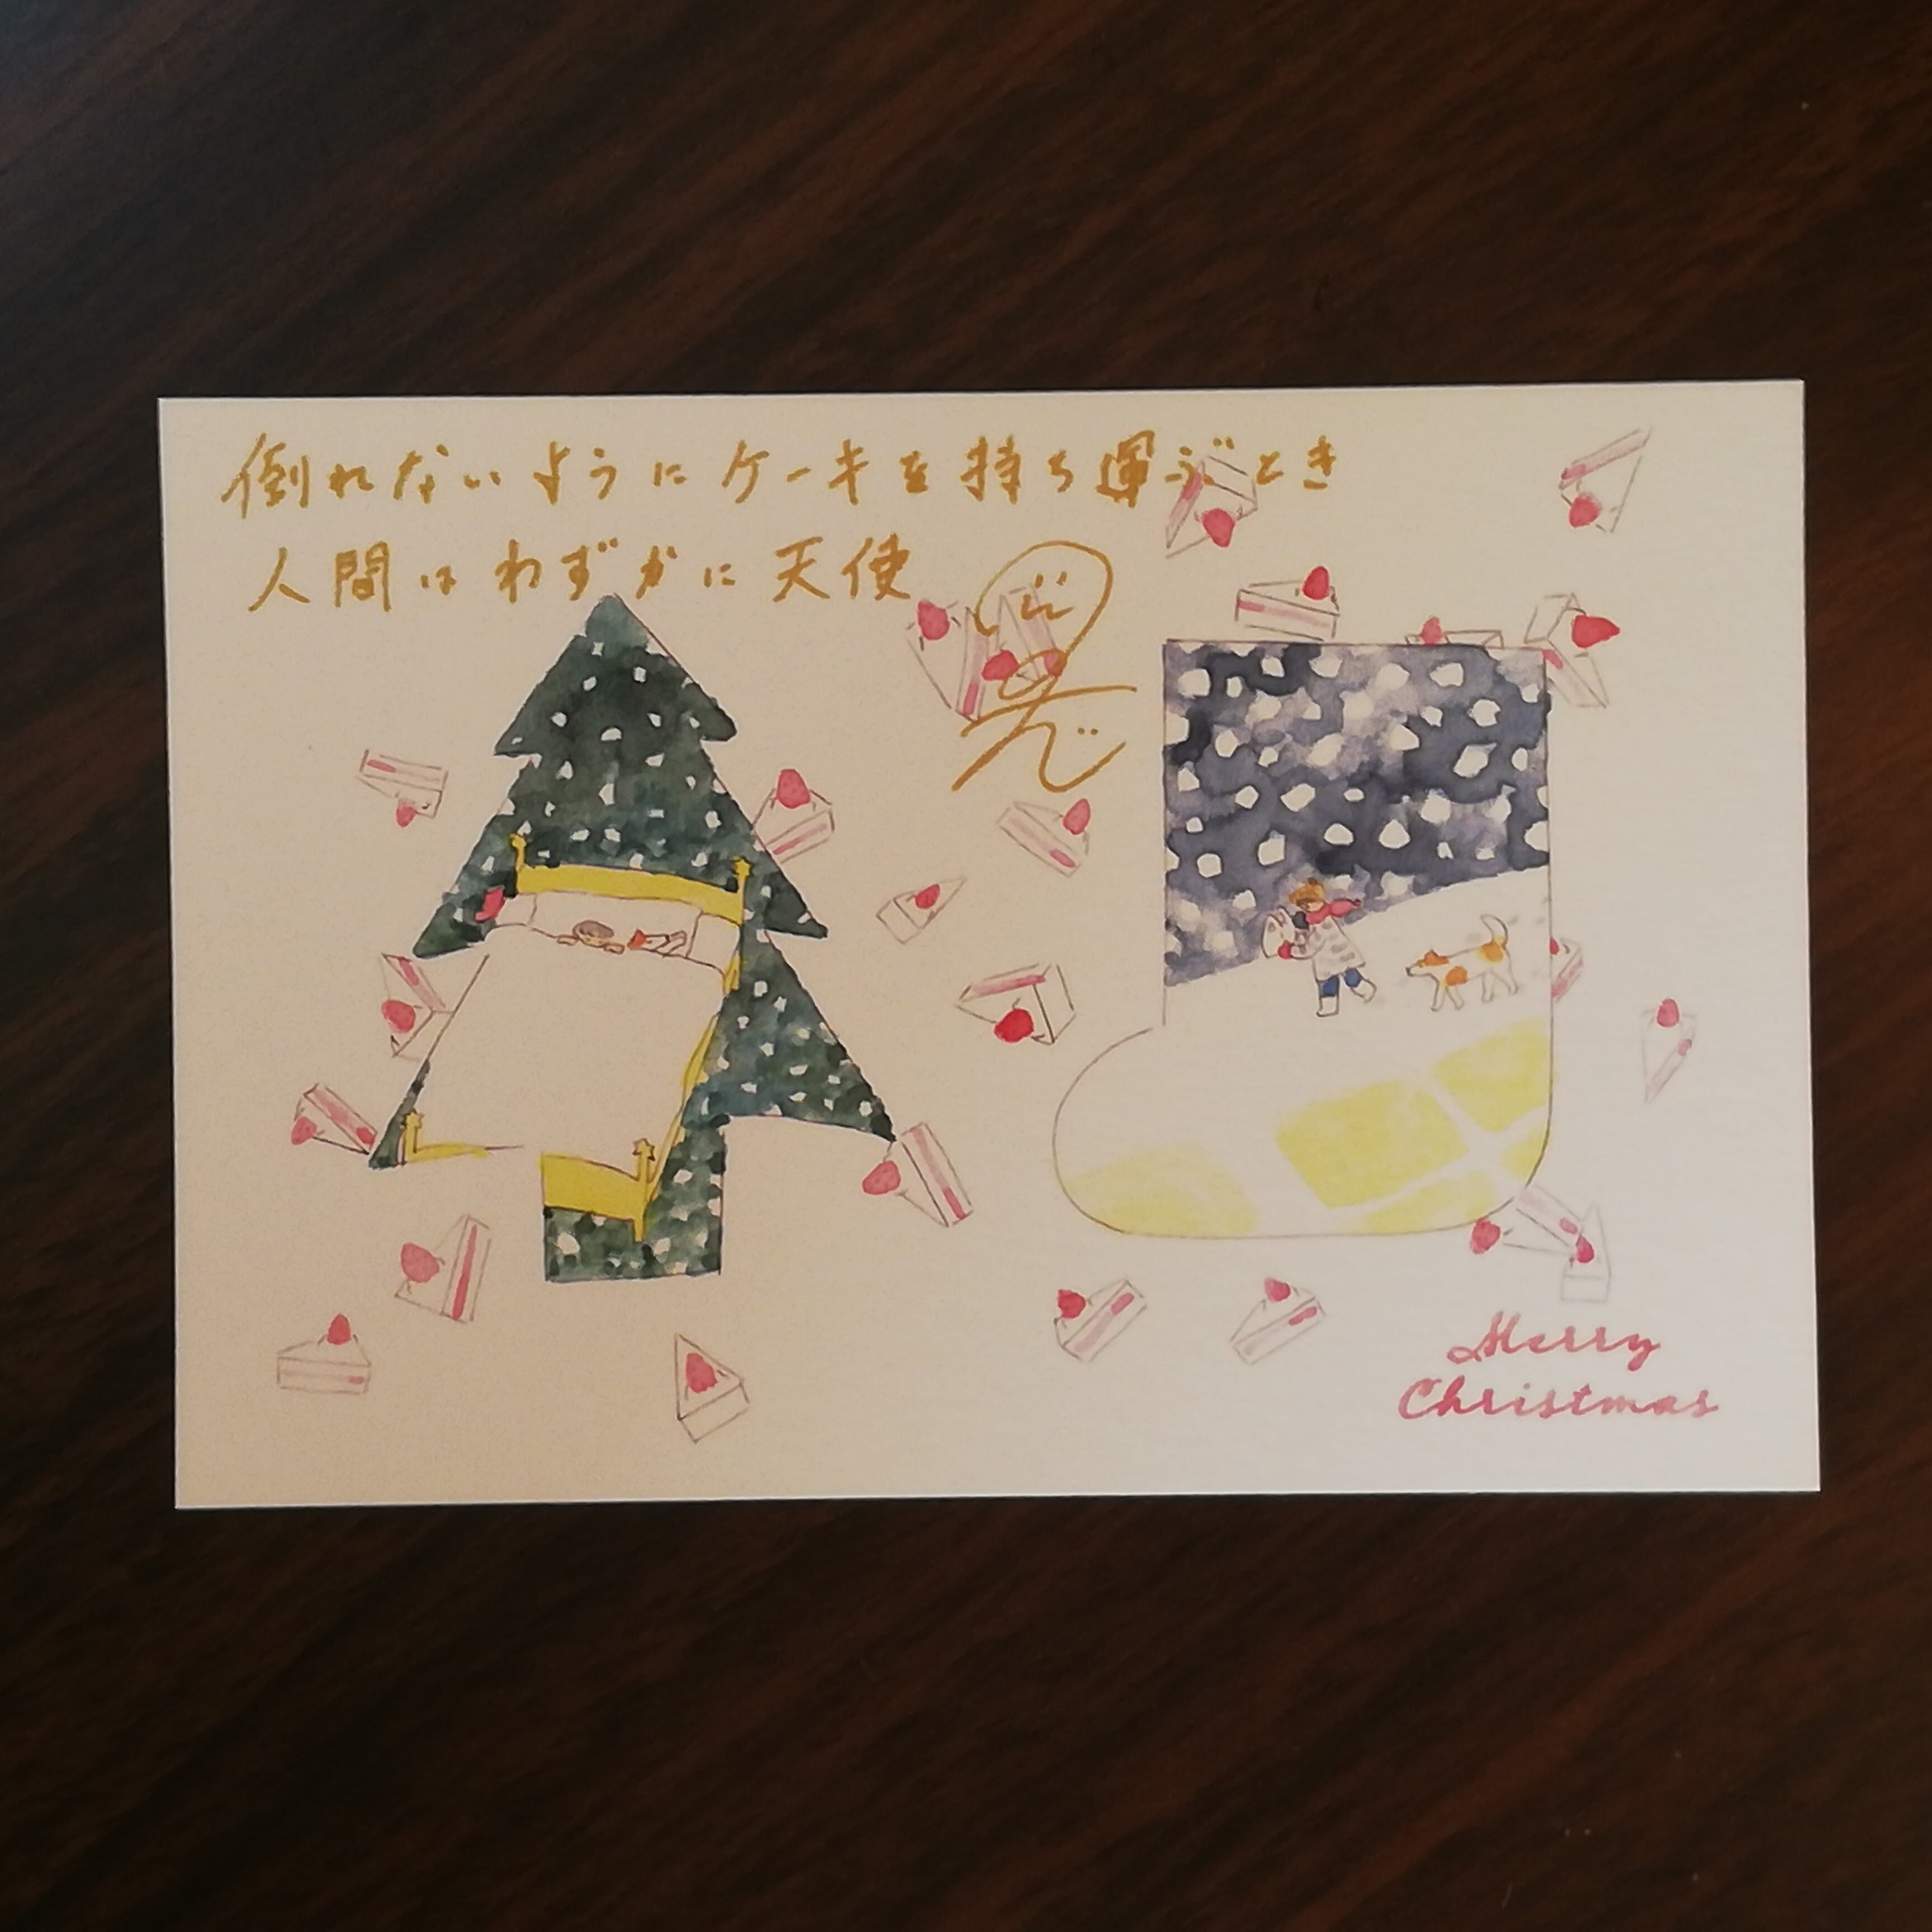 倒れないようにケーキを持ち運ぶとき
人間はわずかに天使
Merry
Christmas